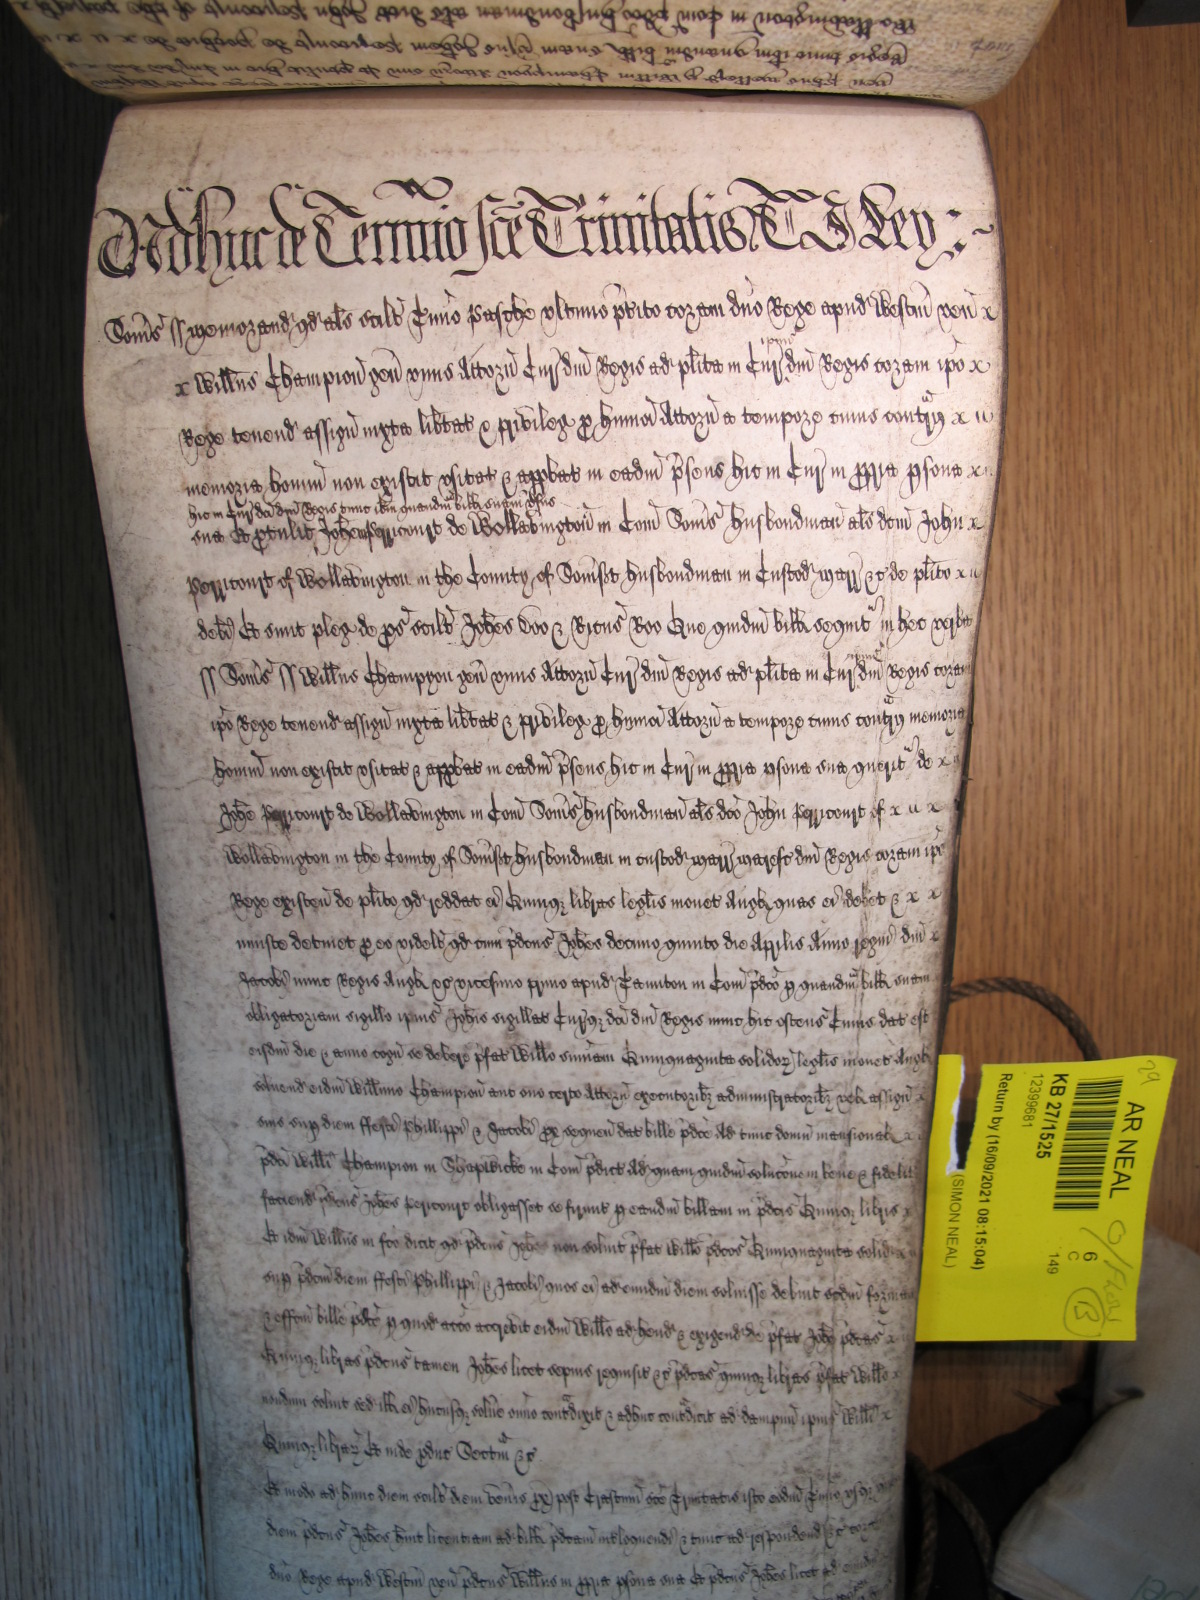 Adhuc de Termio sce Trinitatis T I Ley
Soms ss Memorand qd als scilt Tmio Pasche ultimo pterito coram dno Rege apud Westm ven x
x Willus Champion gen unus Attorn Cur dni Regis ad plita in Cur dni Regis coram ipo x
ipius
Rege tenend assign iuxta libtat & privileg p humoi Attorn a tempore cuius contrar x
memoria homin non existit usitat & approbat in eadm psens hic in Cur in ppria psona x
hic in Cur dci dni Regis tunc ibm quandm billa suam vsus
sua Et ptulit Johem Perricourt de Wollavington in Com Soms husbondman als dcm John x
Perricourt of Wollavington in the County of Somset husbondman in Custod marr &c de plito x
debi Et sunt pleg de ps scilt Johes Doo & Ricus Roo Que quidm billa sequit in hec verba
ss Soms ss Willus Champyon gen unus Attorn Cur dni Regis ad plita in Cur dni Regis coram
ipo Rege tenend assign iuxta libtat & privileg p humoi Attorn a tempore cuius contrar memoria
homin non existit usitat & approbat in eadm psens hic in Cur in ppria psona sua querit de x
Johe Perricourt de Wollavington in Com Soms husbondman als dco John Perricourt of x x
Wollavington in the County of Somset husbondman in custod marr maresc dni Regis coram ipo
Rege existen de plito qd reddat ei Quinq libras leglis monet Angl quas ei debet & x x
iniuste detinet p eo videlt qd cum pdcus Johes decimo quinto die Aprilis Anno regni dni x
Jacobi nunc Regis Angl &c vicesimo primo apud Taunton in Com pdco p quandm billa suam
obligatoriam sigillo ipius Johis sigillat Curq dci dni Regis nunc hic ostens Cuius dat est
eisdm die & anno cogn se debere pfat Willo sumam Quinquaginta solidor leglis monet Angl
solvend eidm Willimo Champion aut suo certo Attorn executorib administratorib vel assign
suis sup diem ffesti Phillippi & Jacobi px sequen dat bille pdce Ad tunc domu mansional
pdci Willi Champion in Shapwicke in Com pdict Ad quam quidm solucoem bene & fidelit
faciend pdcus Johes Pericourt obligasset se firmit p eandm billam in pdcis Quinq libris
Et idm Willus in fco dicit qd pdcus Johes non solvit pfat Willo pdcos Quinquaginta solid
sup pdcm diem ffesti Phillippi & Jacobi quos ei ad eundm diem solvisse debuit scdm formam
& effcum bille pdce p quod acco accrevit eidm Willo ad hend & exigend de pfat Johe pdcas x
Quinq libras pdcus tamen Johes licet sepius requisit &c pdcas quinq libras pfat Willo
nondum solvit sed ill ei hucusq solve omino contdixit & adhuc contdicit ad dampnu ipius Willi x
Quinq librar Et inde pduc Sectm &c
Et modo ad hunc diem scilt diem Venis px post Crastinu sce Trinitatis isto eodm Tmio usq
diem pdcus Johes huit licentiam ad billa pdcam intloquendi & tunc ad respondend &c coram
dno Rege apud Westm ven pdcus Willus in ppria psona sua Et pdcus Johes licet ad
AR NEAL
KB 27/1525
12399681
Return by (16/09/2021 08:15:04)
(SIMON NEAL)
6
C
149